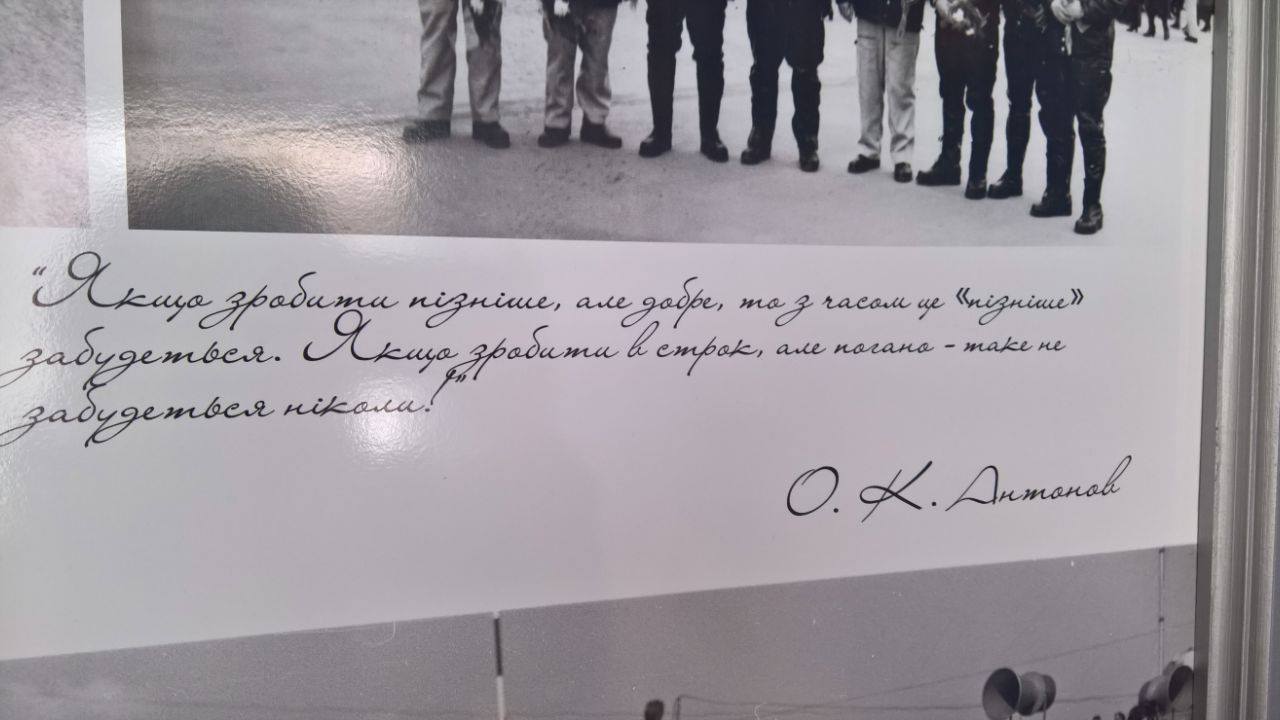 “Якщо зробити пізніше, але добре, то з часом це «пізніше»
забудеться. Якщо зробити в строк, але погано - таке не
забудеться ніколи!”
О. К. Антонов